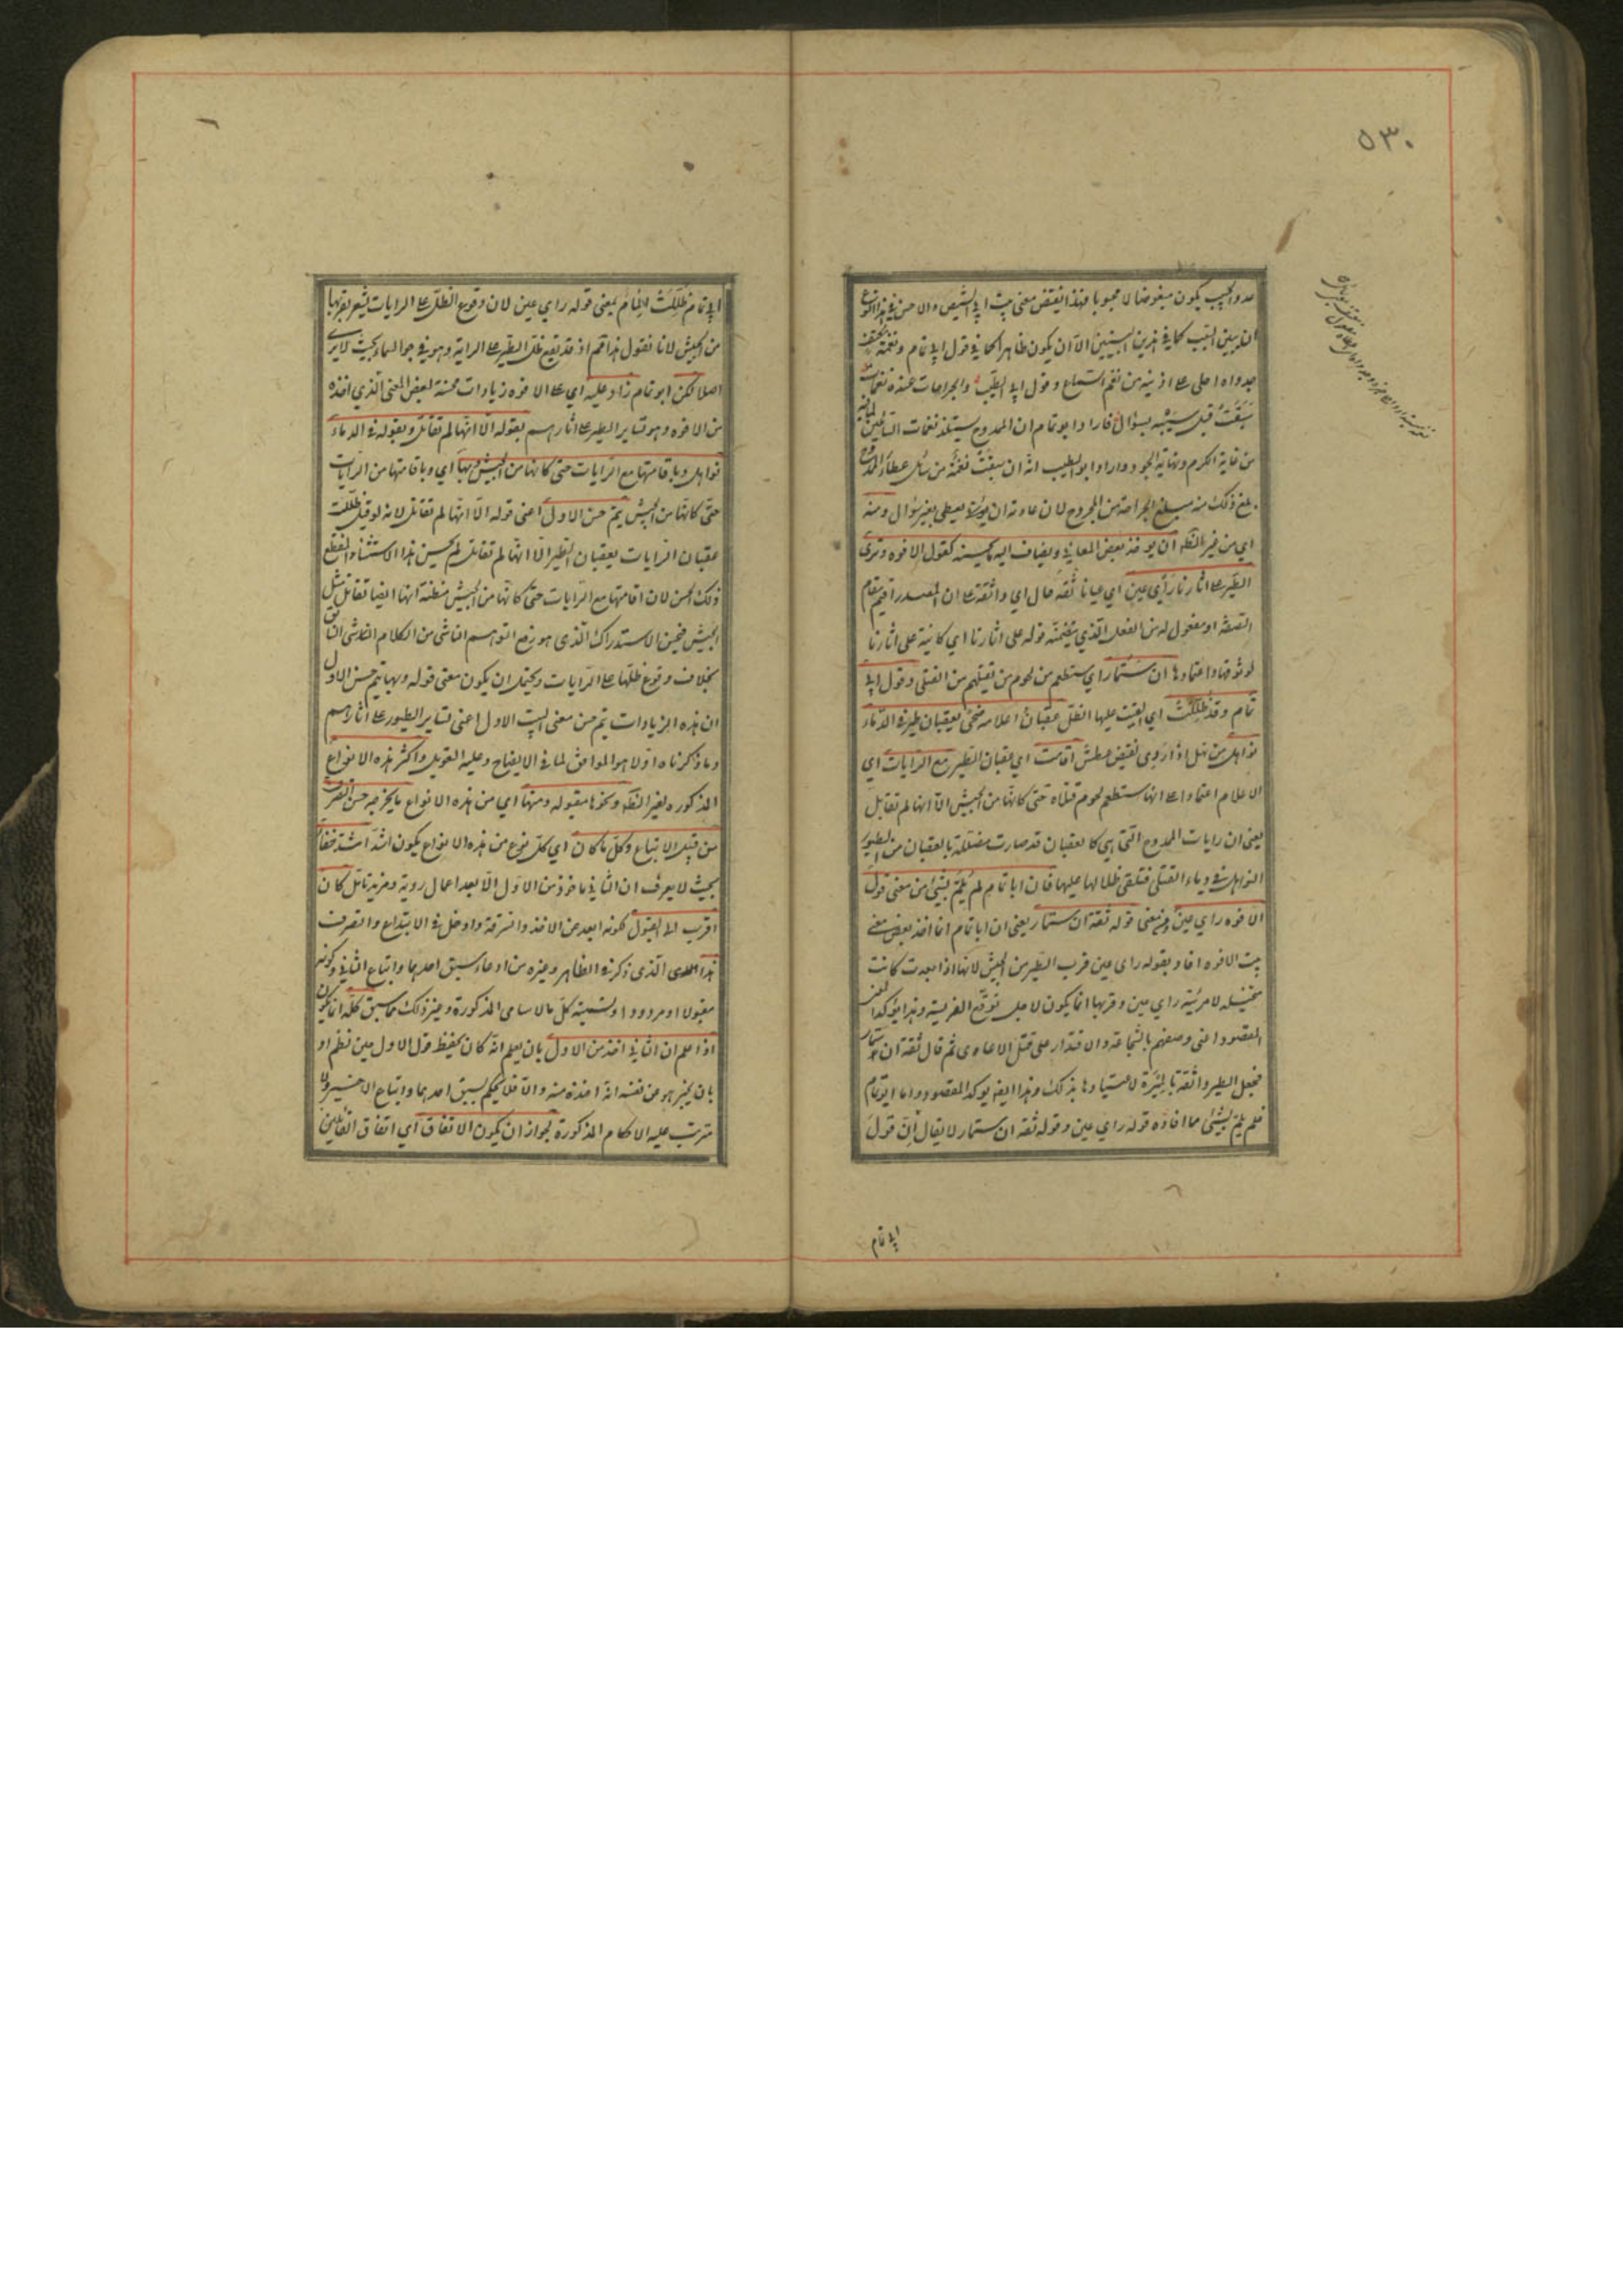 ٥٣٠
عدو الحبيب يكون مبغوضا لا محبوبا فهذا نقيض معنى بيت ابي الشيص والاحسن في هذا النوع
ان يبين السبب كما في هذين البيتين الا ان يكون ظاهرا كما في قول ابي تمام ونغمة معتف
جدواه احلى على اذنيه من نغم السماع وقول ابي الطيب والجراحات عنده نغمات
سبقت قبل سيبه بسؤال فاراد ابو تمام ان الممدوح يستلذ نغمات السائلين لما فيه
من غاية الكرم ونهاية الجود واراد ابو الطيب انه ان سبقت نغمة من سائل عطاء الممدوح
بلغ ذلك منه مبلغ الجراحة من المجروح لان عادته ان يعطي بغير سؤال ومنه
اي من غير الظاهر ان يوخذ بعض المعاني ويضاف اليه ما يحسنه كقول الافوه وترى
الطير على اثارنا رأي عين اي عيانا ثقة حال اي واثقة على ان المصدر اقيم مقام
الصفة او مفعول له من الفعل الذي يتضمنه قوله على اثارنا اي كائنة على اثارنا
لوثوقها واعتمادها ان ستمار اي ستطعم من لحوم من نقتلهم من القتلى وقول ابي
تمام وقد ظللت اي القيت عليها الظل عقبان اعلامه ضحى بعقبان طير في الدماء
نواهل من نهل اذا روي نقيض عطش اقامت اي عقبان الطير مع الرايات اي
الاعلام اعتمادا على انها ستطعم لحوم قتلاه حتى كانها من الجيش الا انها لم تقاتل
يعني ان رايات الممدوح التي هي كالعقبان قد صارت مظللة بالعقبان من الطيور
النواهل في دماء القتلى فتلقي ظلالها عليها فان ابا تمام لم يلم بشيء من معنى قول
الافوه راي عين ومن معنى قوله ثقة ان ستمار يعني ان ابا تمام انما اخذ بعض معنى
بيت الافوه افاد بقوله راى عين قرب الطير من الجيش لانها اذا بعدت كانت
متخيلة لا مرئية راي عين وقربها انما يكون لاجل توقع الفريسة وهذا يؤكد المعنى
المقصود اعنى وصفهم بالشجاعة والاقتدار على قتل الاعادى ثم قال ثقة ان ستمار
فجعل الطير واثقة بالميرة لاعتيادها بذلك وهذا ايضا يوكد المقصود واما ابو تمام
فلم يلم بشيء مما افاده قوله راي عين وقوله ثقة ان ستمار لا يقال ان قول
ابي تمام
ابي تمام ظللت المام بمعنى قوله راي عين لان وقوع الظل على الرايات يشعر بقربها
من الجيش لانا نقول هذا اذ قد يقع ظل الطير على الراية وهو في جو السماء بحيث لا يرى
اصلا لكن ابو تمام زاد عليه اي على الافوه زيادات محسنة لبعض المعنى الذي اخذه
من الافوه وهو تساير الطير على اثارهم بقوله الا انها لم تقاتل وبقوله في الدماء
نواهل وباقامتها مع الرايات حتى كانها من الجيش وبها اي وباقامتها من الرايات
حتى كانها من الجيش يتم حسن الاول اعنى قوله الا انها لم تقاتل لانه لو قيل ظللت
عقبان الرايات بعقبان الطير الا انها لم تقاتل لم يحسن هذا الاستثناء المنقطع
ذلك الحسن لان اقامتها مع الرايات حتى كانها من الجيش مظنة انها ايضا تقاتل مثل
الجيش فيحسن الاستدراك الذى هو رفع التوهم الناشى من الكلام السابق
بخلاف وقوع ظلها على الرايات ويحتمل ان يكون معنى قوله وبها يتم حسن الاول
ان هذه الزيادات تتم حسن معنى البيت الاول اعنى تساير الطيور على اثارهم
وما ذكرناه اولا هو الموافق لما في الايضاح وعليه التعويل واكثر هذه الانواع
المذكوره لغير الظاهر ونحوها مقبوله ومنها اي من هذه الانواع ما يخرجه حسن التصرف
من قبيل الاتباع وكل ما كان اي كل نوع من هذه الانواع يكون اشد خفاء
بحيث لا يعرف ان الثاني ماخوذ من الاول الا بعد اعمال روية ومزيد تامل كان
اقرب الى القبول لكونه ابعد عن الاخذ والسرقة وادخل في الابتداع والتصرف
هذا الذى ذكر في الظاهر وغيره من ادعاء سبق احدهما واتباع الثاني وكونه
مقبولا او مردودا وتسمية كل بالاسامى المذكورة وغير ذلك مما سبق كله انما يكون
اذا علم ان الثاني اخذ من الاول بان يعلم انه كان يحفظ قول الاول حين نظم او
بان يخبر هو عن نفسه انه اخذه منه والا فلا يحكم بسبق احدهما واتباع الاخر ولا
يترتب عليه الاحكام المذكورة لجواز ان يكون الاتفاق اي اتفاق القائلين